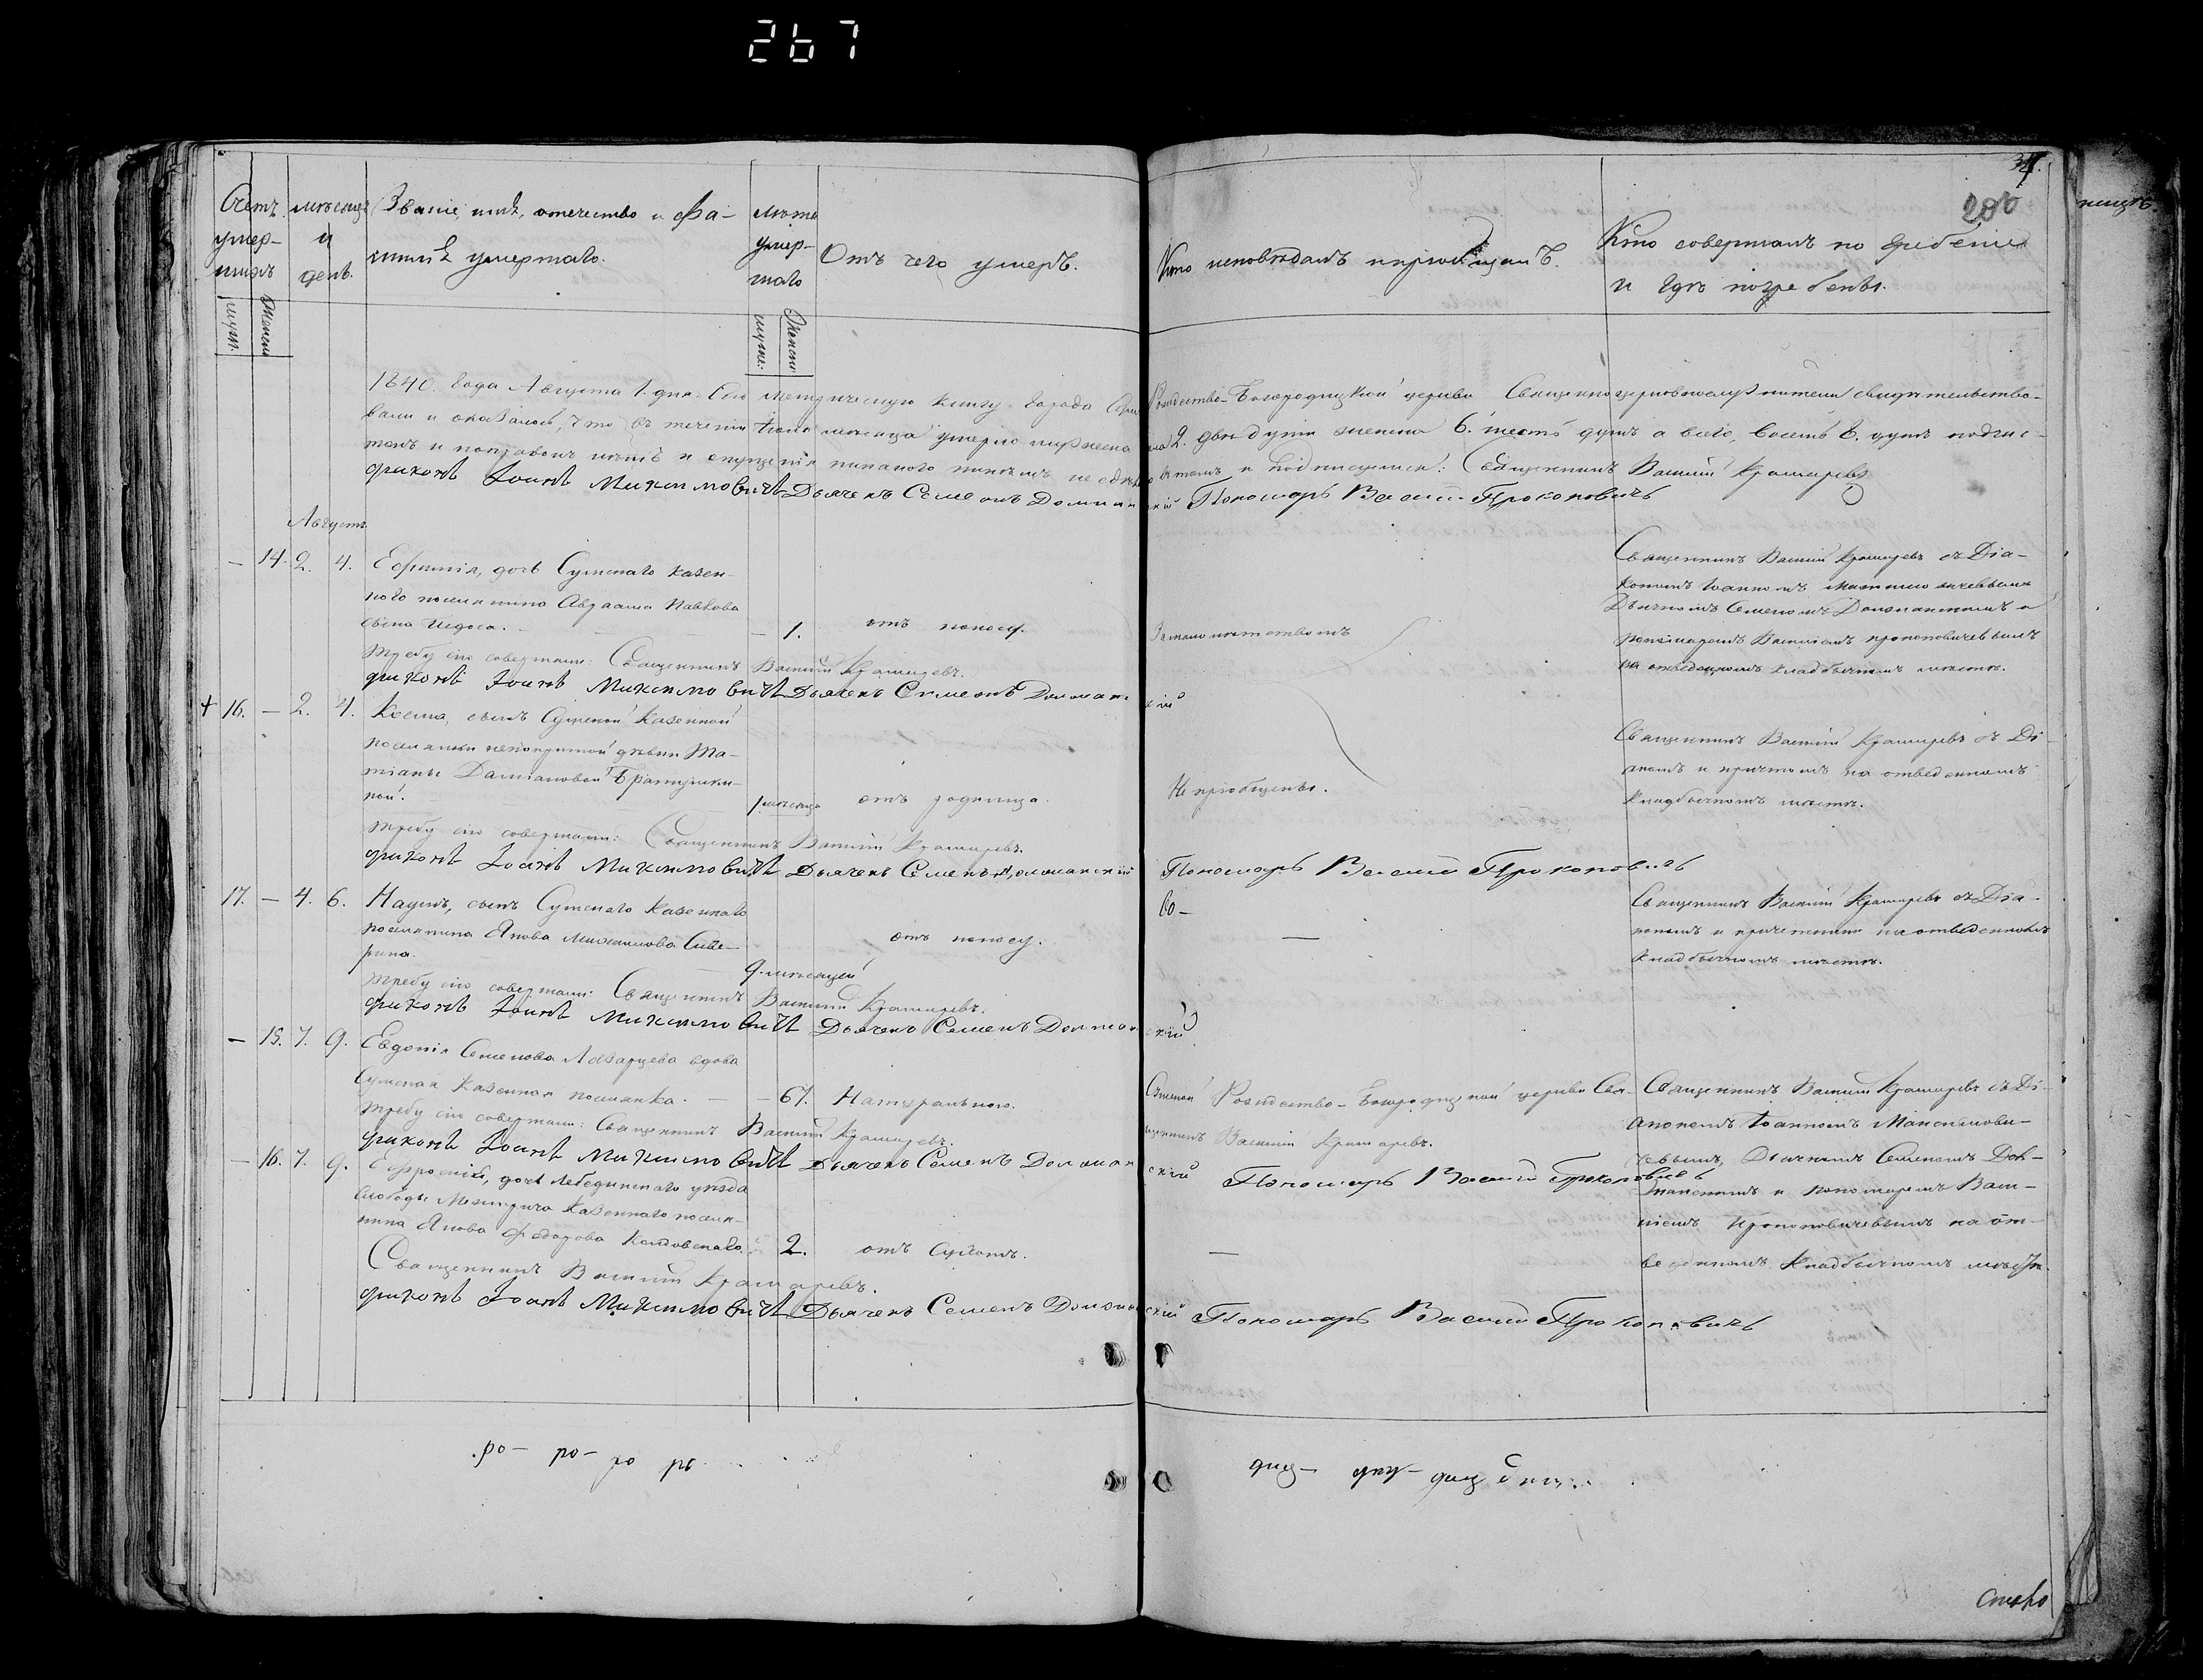 267
34.
200
Счетъ умер-шихъ
муж. женск.
мѣсяцъ и день.
Званіе, имя, отечество и фа-
милія умершаго.
лѣта умер-шаго
муже: женск:
Отъ чего умеръ.
Кто исповѣдалъ и пріобщалъ.
Кто совершалъ погребеніе
и гдѣ погребены.
1840. Года Августа 1. дня. Сію метрическую книгу города Сумъ Рождество-Богородицкой церкви Священноцерковнослужители свидѣтельство-
вали и оказалось, что въ теченіи Іюля мѣсяца умерло мужеска пола 2. двѣ души женска 6. шесть душъ а всего восемь 8. душъ
и поправокъ нѣтъ и опущенія никакого никѣмъ не сдѣлано въ томъ и подписуемся: Священникъ Василій Крамаревъ
Діаконъ Іоаннъ Максимовичъ Дьячекъ Семенъ Долманскій Пономарь Василій Прокоповичъ
Августъ
— 14. 2. 4. Евфимія, дочь Сумскаго казен-
ного поселянина Авраама Павлова
сына
— 1. отъ поносу.
За малолѣтствомъ
Священникъ Василій Крамаревъ съ Діа-
кономъ Іоанномъ Максимовичевымъ
Дьячкомъ Семеномъ Долманскимъ и
пономаремъ Василіемъ Прокоповичевымъ
на отведенномъ кладбищномъ мѣстѣ.
требу сію совершали: Священникъ Василій Крамаревъ.
Діаконъ Іоаннъ Максимовичъ Дьячекъ Семенъ Долманскій
+ 16. — 2. 4. Косма, сынъ Сумской казенной
поселянки непокрытой дѣвки Та-
тіаны Даміановой Братушки-
ной.
1 мѣсяца отъ родимца.
Не пріобщенъ.
Священникъ Василій Крамаревъ съ Ді-
акономъ и причтомъ на отведенномъ
кладбищномъ мѣстѣ.
требу сію совершали: Священникъ Василій Крамаревъ.
Діаконъ Іоаннъ Максимовичъ Дьячекъ Семенъ Долманскій Пономарь Василій Прокоповичъ
17. — 4. 6. Наумъ, сынъ Сумскаго казеннаго
поселянина Якова Михаилова Сиве-
рина.
9. мѣсяцей отъ поносу.
во —
—
Священникъ Василій Крамаревъ съ Діа-
кономъ и причетники на отведенномъ
кладбищномъ мѣстѣ.
требу сію совершали: Священникъ Василій Крамаревъ.
Діаконъ Іоаннъ Максимовичъ Дьячекъ Семенъ Долманскій
— 15. 7. 9. Евдокія Семенова вдова
Сумская казенная поселянка.
— 67. Натурально.
Сумской Рождество-Богородицкой церкви Свя-
щенникъ Василій Крамаревъ.
Священникъ Василій Крамаревъ съ Ді-
акономъ Іоанномъ Максимови-
чевымъ, Дьячкомъ Семеномъ Дол-
манскимъ и пономаремъ Васи-
ліемъ Прокоповичевымъ на от-
веденномъ кладбищномъ мѣстѣ.
требу сію совершали: Священникъ Василій Крамаревъ.
Діаконъ Іоаннъ Максимовичъ Дьячекъ Семенъ Долманскій Пономарь Василій Прокоповичъ
— 16. 7. 9. Евфросинія, дочь Лебединскаго уѣзда
слободы Межирича казеннаго поселя-
нина Якова Федорова
2. отъ
—
Священникъ Василій Крамаревъ.
Діаконъ Іоаннъ Максимовичъ Дьячекъ Семенъ Долманскій Пономарь Василій Прокоповичъ
ро- ро- ро ро